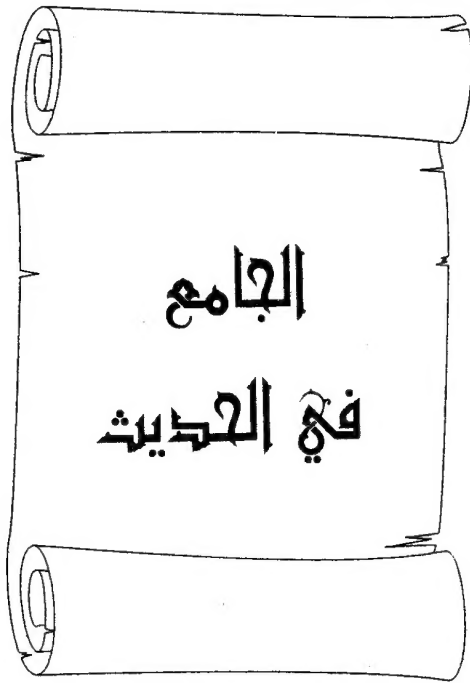 الجامع
في الحديث